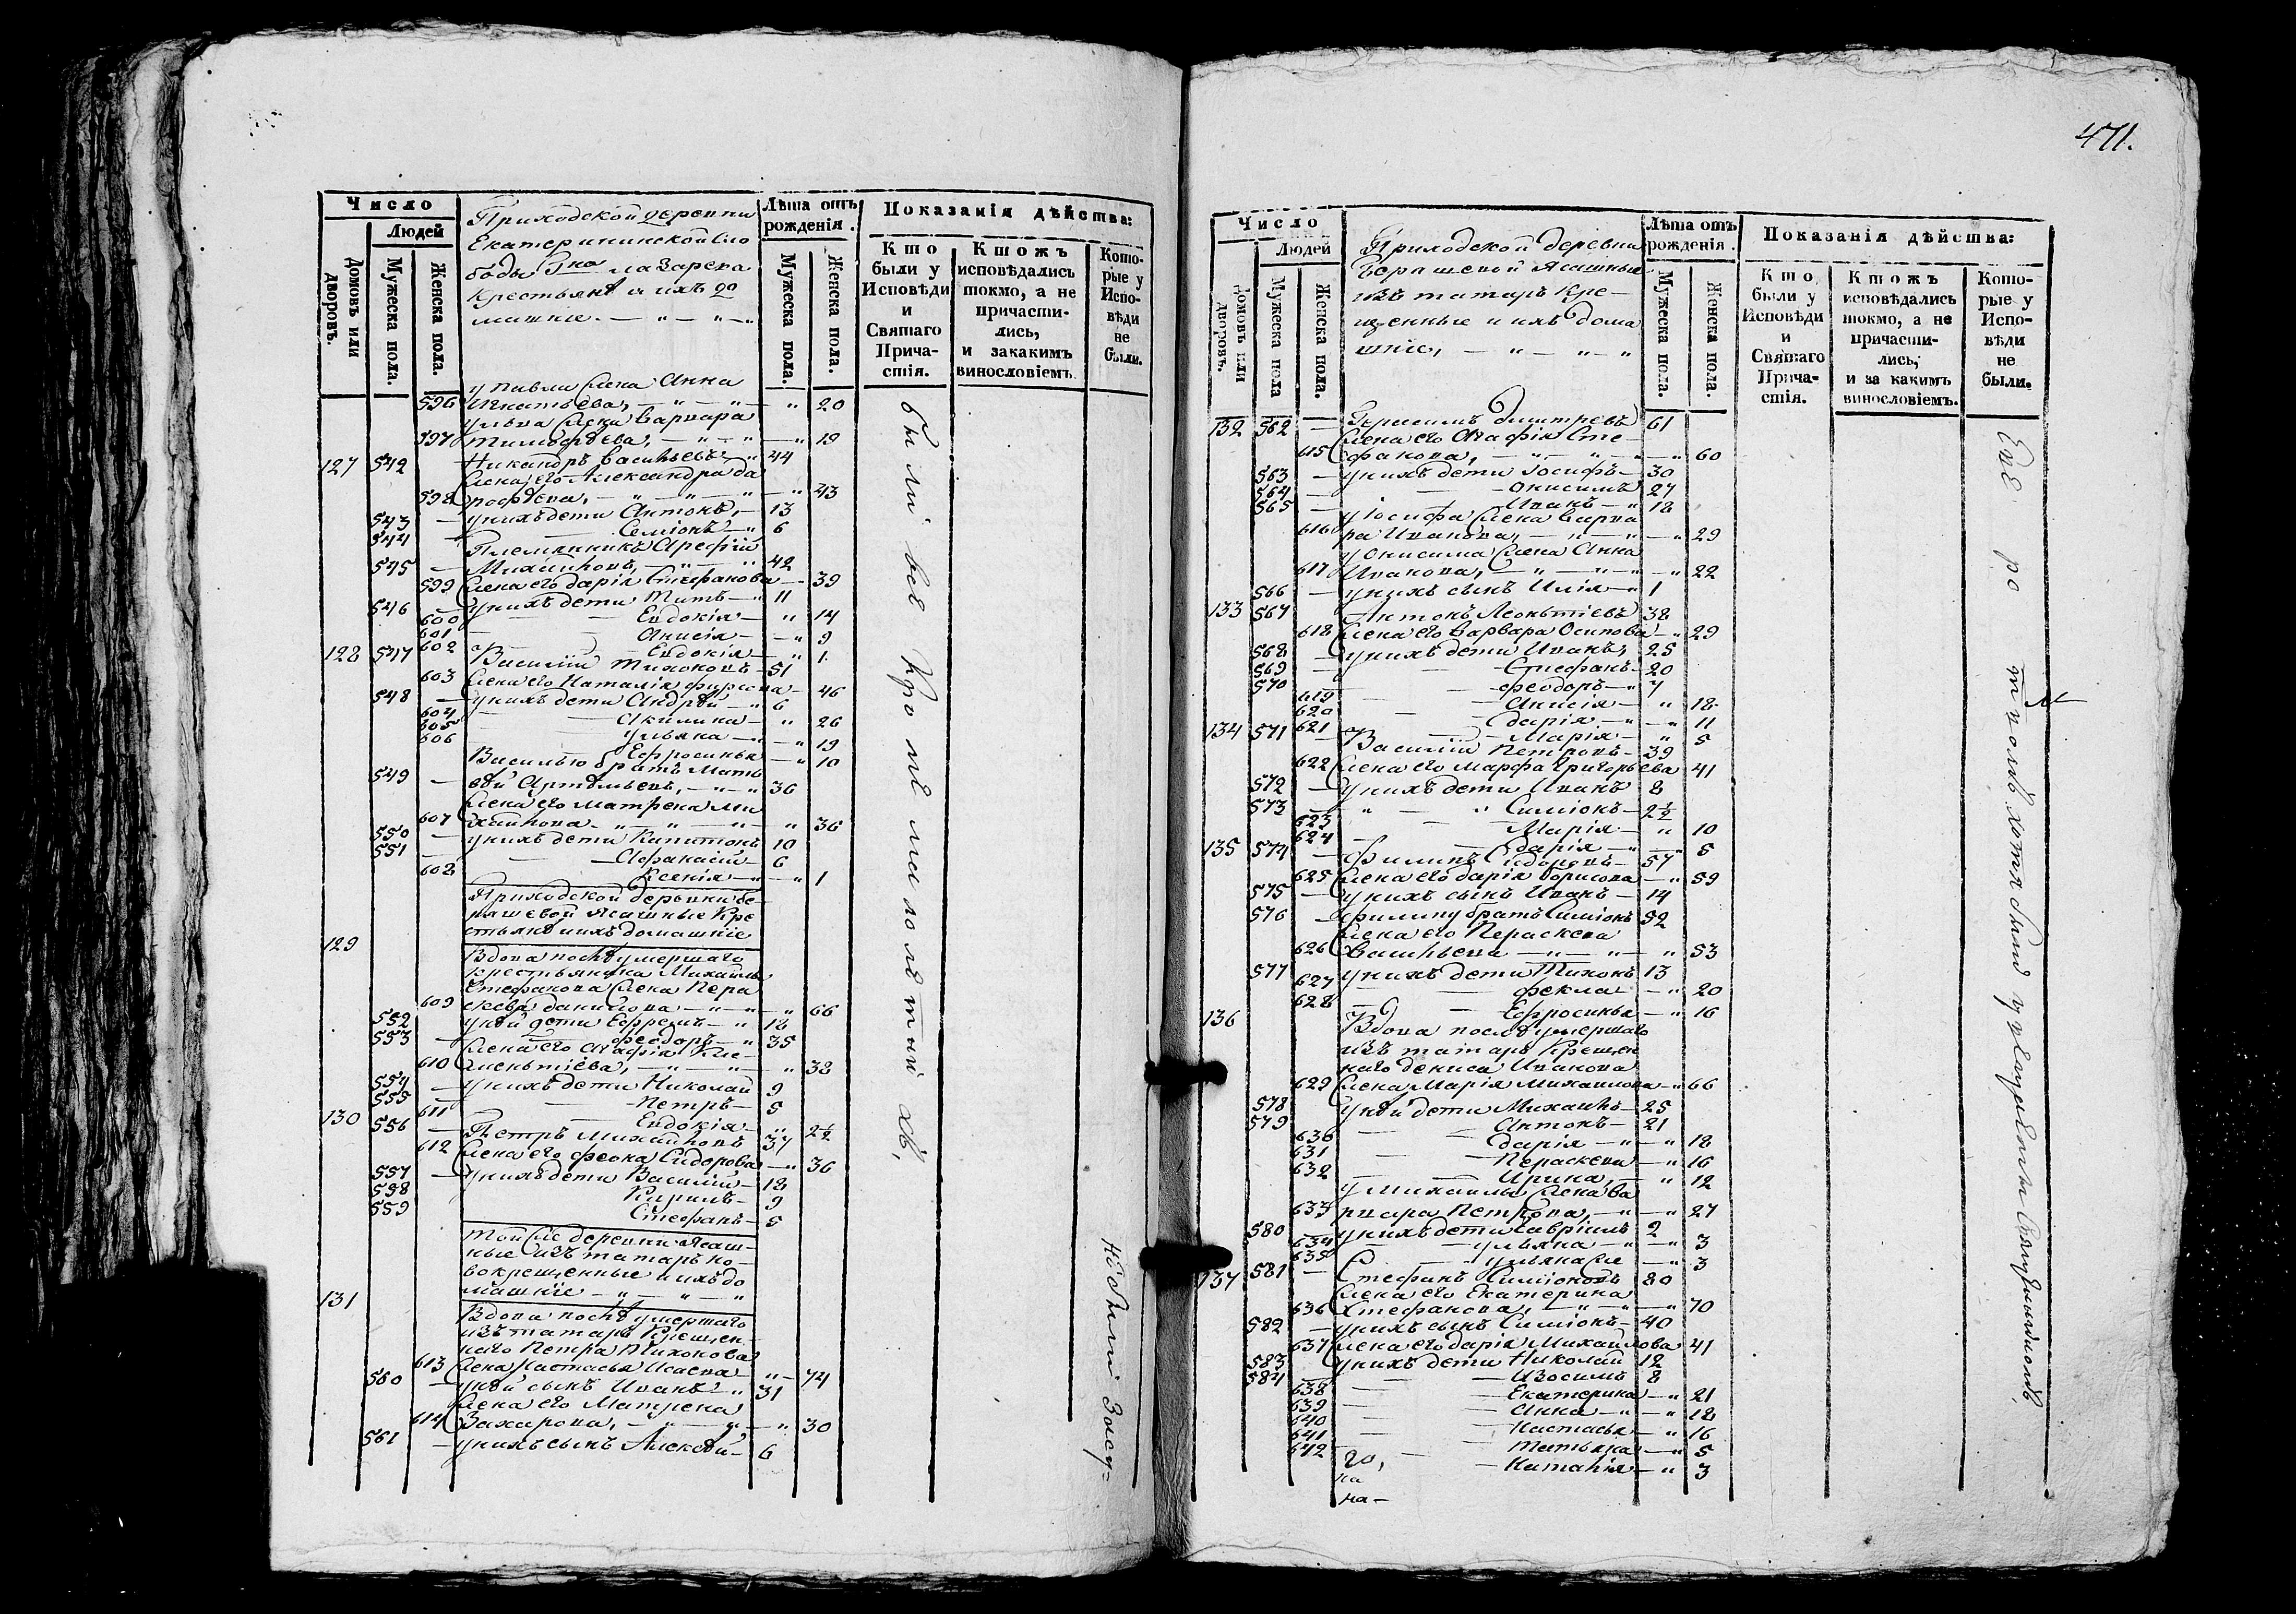 471.
Число
Людей
Домовъ или дворовъ.
Мужеска пола.
Женска пола.
Приходской деревни
Екатерининской Сло
боды Гна лазарева
Крестьянѣ и ихъ до
машніе. — " — " —
Лѣта отъ рожденія.
Мужеска пола.
Женска пола.
Показанія дѣйства:
Кто были у Исповѣди и Святаго Причастія.
Ктожъ исповѣдались токмо, а не причастились, и закакимъ винословіемъ.
Которые у Исповѣди не были.
у павла жена Анна
596 Игнатьева, — " — " — " 20
ульва жена варвара
597 тимофѣева, — " — " — " 19
127 542 Никандръ васильевъ " 44
жена его Александра да
598 рофѣева, — " — " — " 43
543 — у нихъ дети Антонъ, — 13
544 — Семіонъ — " 6
Племянникъ Арефій
545 — Михайловъ, — " — " 42
599 жена его дарія Стефанова — 39
546 у нихъ дети Титъ — " 11
600 — Евдокія — " 14
601 — Анисія — " 9
602 — Евдокія — " 1
128 547 Василій Тихоновъ — 51
603 жена его Наталія фирсова — 46
548 — у нихъ дети Андрѣй — " 6
604 — Акилина — " 26
605 — ульяна — " 19
606 — Ефросинья — " 10
Василью братъ Матв
549 — ѣй Артѣмьевъ, — " — " 36
жена его матрена ми
607 хайлова — " — " — " 36
550 — у нихъ дети Капитонъ 10
551 — Афанасій — 6
608 — Ксенія — " — " 1
Приходской деревни бе
ряшевой Ясашные Кре
стьянѣ и ихъ домашніе
129 Вдова послѣ умершаго
крестьянина Михаила
Стефанова жена Пера
609 скева данилова — " — " 66
552 у нѣй дети Ефремъ — " 18
553 — феодоръ — " 35
жена его Агафія Кле-
610 меньтіева, — " — " — " 38
554 — у нихъ дети Николай 9
555 — Петръ — 5
611 — Евдокія — " 2½
130 556 — Петръ Михайловъ 37
612 жена его феона Сидорова — " 36
557 — у нихъ дети Василій — 18
558 Кирилъ — 9
559 Стефанъ — 5
той же деревни Ясаш-
ные изъ татаръ но-
вокрещенные и ихъ до
машніе — " — " — "
131 Вдова послѣ умершаго
изъ татаръ Крещен-
наго Петра Тихонова
613 жена Настасья Исаева " — 74
560 — у нѣй сынъ Иванъ — " 31
жена его Матрена
614 Захарова, — " — " — " 30
561 — у нихъ сынъ Алексѣй — 6
были всѣ Кромѣ малолѣтныхъ,
Число
Людей
Домовъ или дворовъ.
Мужеска пола
Женска пола.
Приходской деревни
Беряшевой Ясашные
изъ татаръ Кре-
щенные и ихъ дома
шніе, — " — " — "
Лѣта отъ рожденія.
Мужеска пола.
Женска пола.
Показанія дѣйства:
Кто были у Исповѣди и Святаго Причастія.
Ктожъ исповѣдались токмо, а не причастились, и за какимъ винословіемъ.
Которые у Исповѣди не были.
132 562 — Герасимъ Дмитревъ 61
жена его Агафія Сте-
615 фанова, — " — " — " 60
563 — у нихъ дети Iосифъ — 30
564 — Онисимъ 27
565 — Иванъ — " 18
у Iосифа жена варва
616 ра Иванова, — " — " — " 29
у Онисима жена Анна
617 Иванова, — " — " — " 22
566 — у нихъ сынъ Илія — " 1
133 567 Антонъ Леоньтіевъ 38
618 жена его варвара Осипова — " 29
568 — у нихъ дети Иванъ, 25
569 — Стефанъ — 20
570 — феодоръ — " 7
619 — Анисія — " 18
620 — дарія — " — " 11
621 — Марія — " 5
134 571 — Василій Петровъ — 39
622 жена его Марфа Григорьева 41
572 — у нихъ дети Иванъ 8
573 — " Симіонъ — 2½
623 — Марія — " 10
624 — дарія — " — " 5
135 574 — филипъ Сидоровъ — 57
625 жена его дарія борисова — " 59
575 — у нихъ сынъ Иванъ — 14
576 — филипу братъ Симіонъ 52
жена его Пераскева
626 Васильева — " — " — " 53
577 у нихъ дети Тихонъ 13
627 — фекла — " 20
628 — Ефросинья — " 16
136 Вдова послѣ умершаго
изъ татаръ Крещен
наго дениса Иванова
629 жена Марія Михаилова — " 66
578 у нѣй дети Михаилъ — 25
579 — Антонъ — 21
630 — дарія — " — " 18
631 — Пераскева — " 16
632 — Ирина, — " 12
у михаила жена ва
633 рвара Петрова, — " — " 27
580 — у нихъ дети гавріилъ 2
634 — ульяна — " — " 3
635 — ульяна же — " 3
137 581 — Стефанъ Симіоновъ 80
жена его Екатерина
636 Стефанова, — " — " — " 70
582 — у нихъ сынъ Симіонъ — 40
637 жена его дарія Михайлова 41
583 — у нихъ дети Николай 12
584 — Изосимъ 8
638 — Екатерина — " 21
639 — Анна — " — " 18
640 — Настасья — " 16
641 — Татьяна — " 5
642 — Наталія — " 3